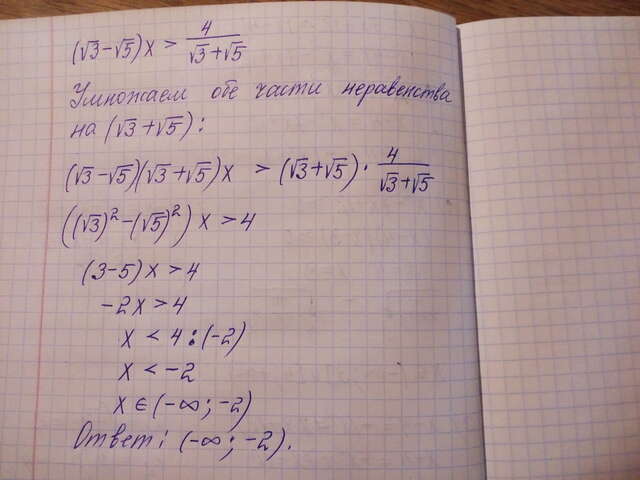 (√3-√5)x > 4/(√3+√5)
Умножаем обе части неравенства
на (√3+√5):
(√3-√5)(√3+√5)x > (√3+√5)· 4/(√3+√5)
((√3)²-(√5)²)x > 4
(3-5)x > 4
-2x > 4
x < 4:(-2)
x < -2
x ∈ (-∞; -2)
Ответ: (-∞; -2).